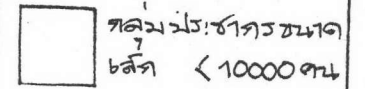 กลุ่มประชากรขนาด
เล็ก < 10000 คน